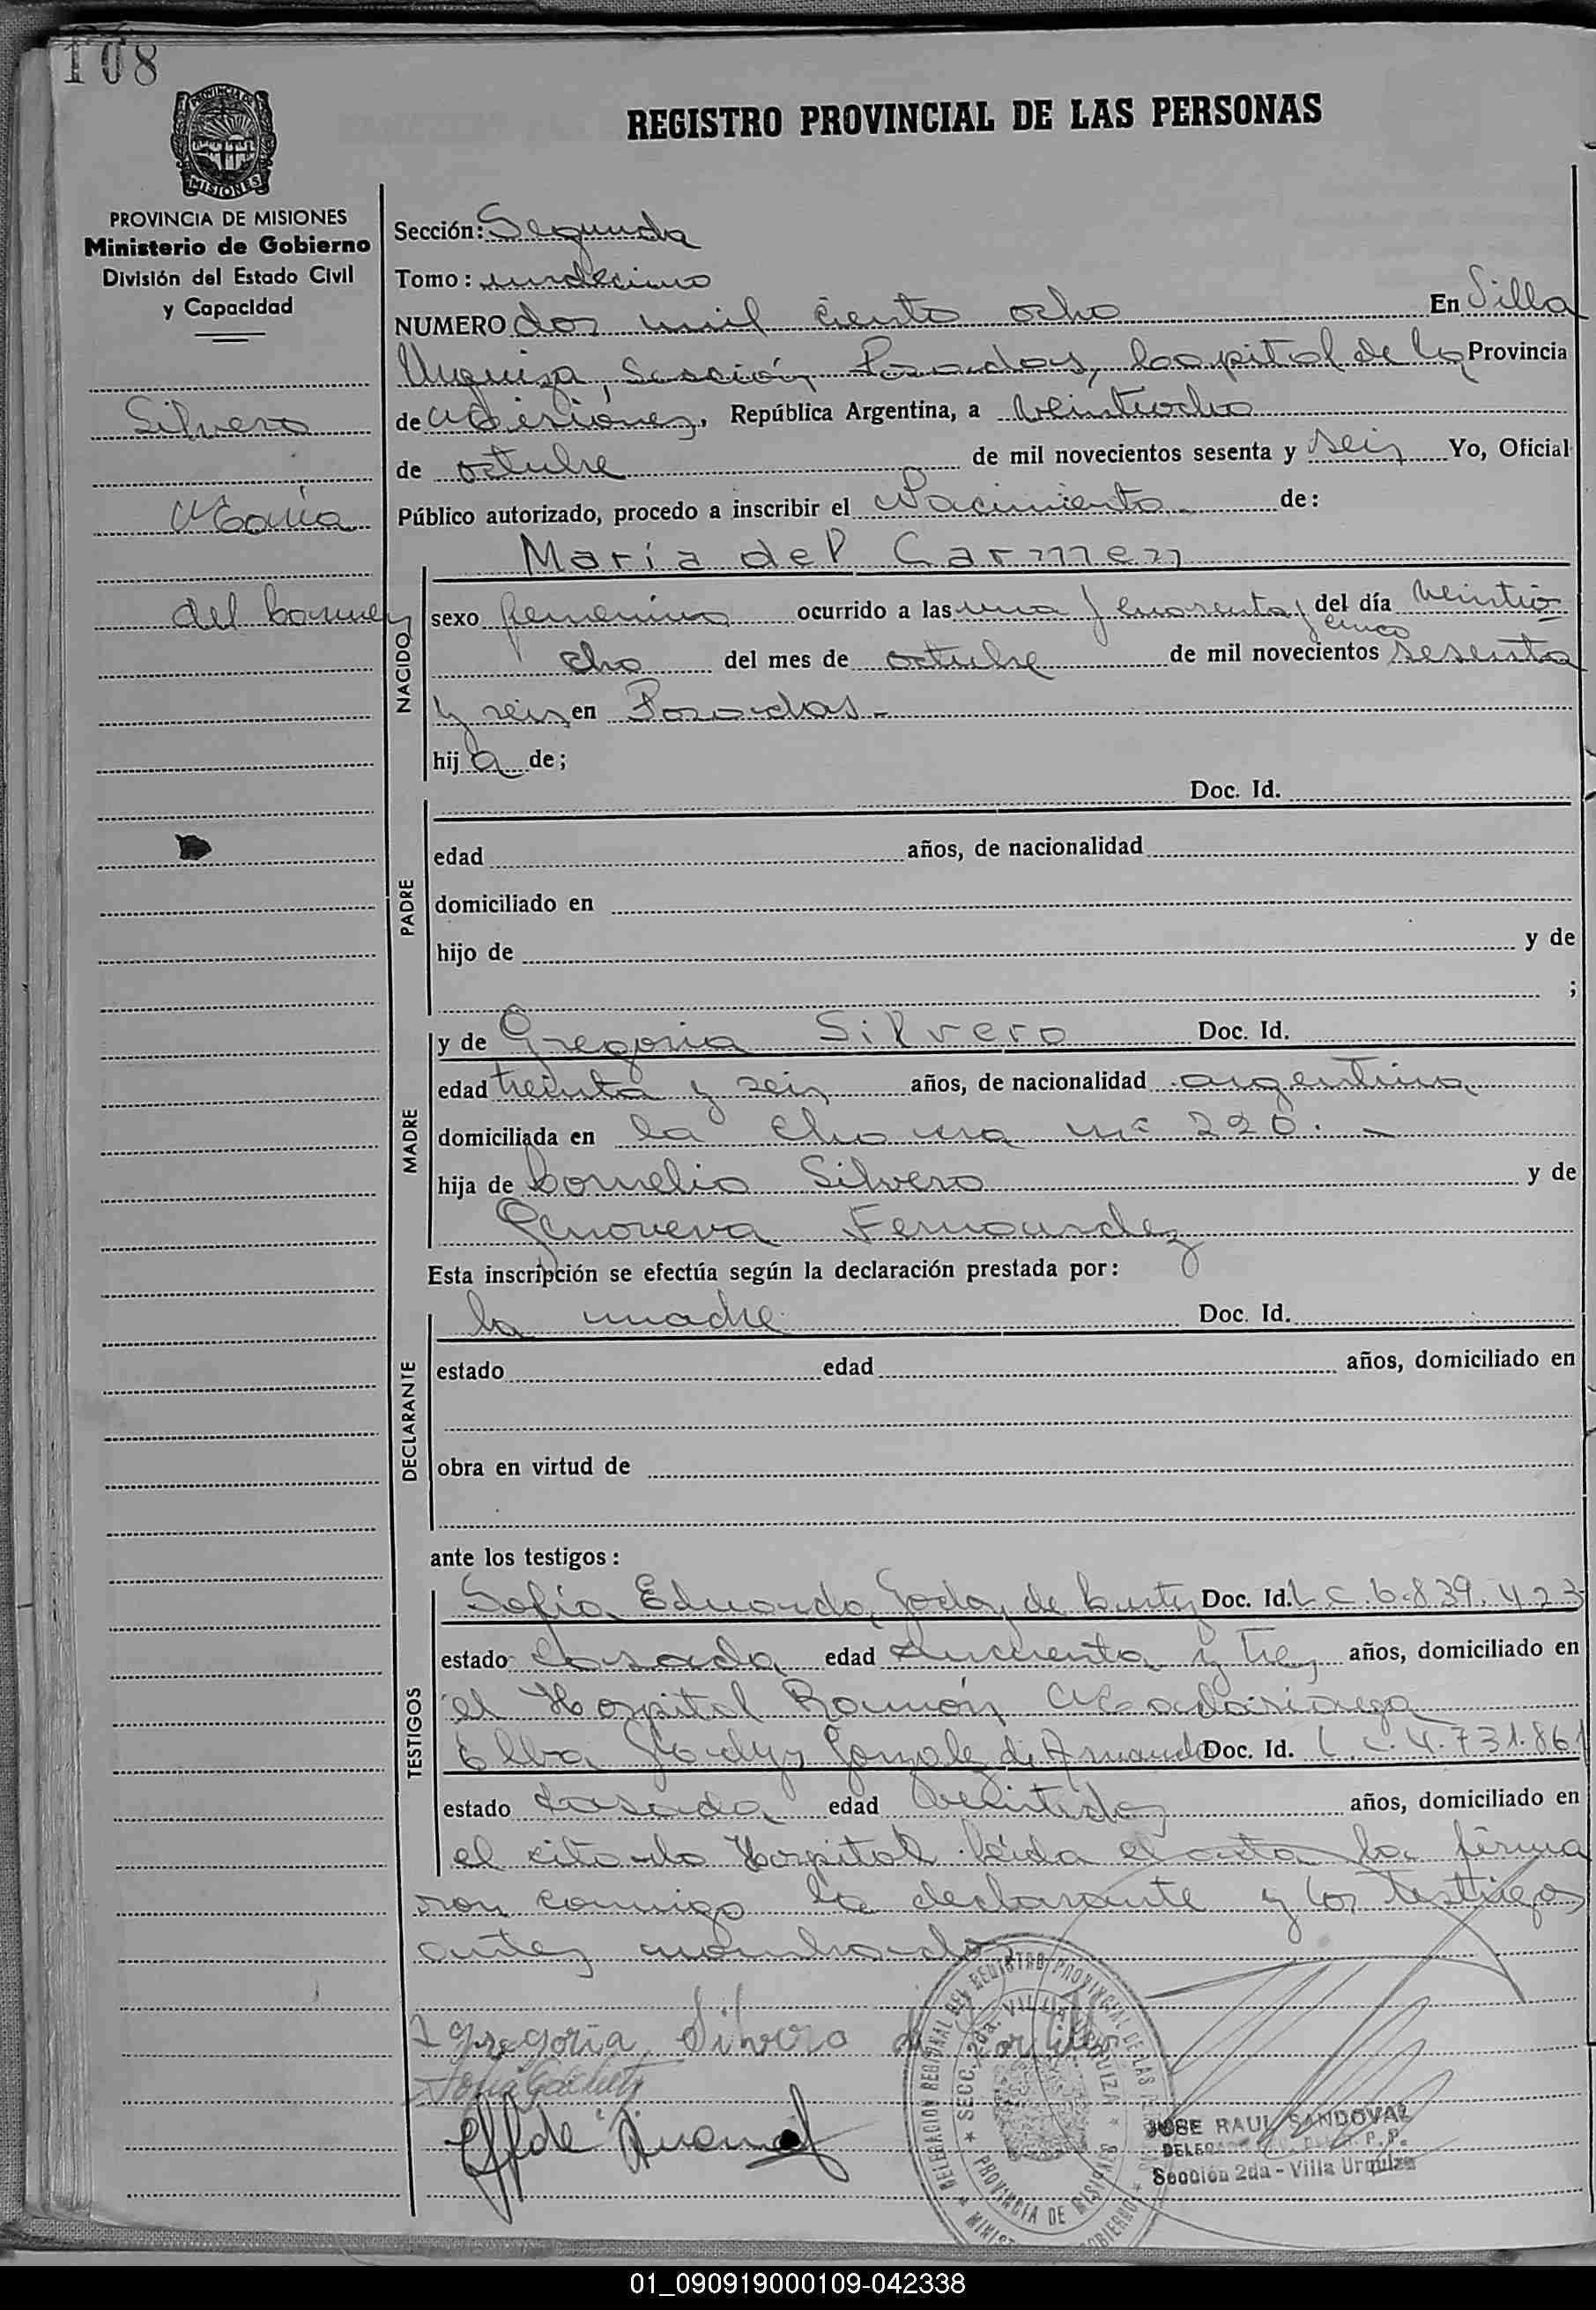 108
PROVINCIA DE MISIONES
REGISTRO PROVINCIAL DE LAS PERSONAS
PROVINCIA DE MISIONES
Ministerio de Gobierno
División del Estado Civil
y Capacidad
Silvero
María
del Carmen
Sección: Segunda
Tomo: undécimo
NUMERO dos mil ciento ocho En Villa
Urquiza, Sección Posadas, hospital de la Provincia
de Misiones, República Argentina, a veintiocho
de octubre de mil novecientos sesenta y seis Yo, Oficial
Público autorizado, procedo a inscribir el Nacimiento de:
María del Carmen
NACIDO
sexo femenino ocurrido a las una y cuarenta y cinco del día veintio
cho del mes de octubre de mil novecientos sesenta
y seis en Posadas.-
hija de;
Doc. Id.
PADRE
edad años, de nacionalidad
domiciliado en
hijo de y de
;
MADRE
y de Gregoria Silvero Doc. Id.
edad treinta y seis años, de nacionalidad argentina
domiciliada en la chacra nº 220. -
hija de Cornelio Silvero y de
Genoveva Fernandez
Esta inscripción se efectúa según la declaración prestada por:
DECLARANTE
la madre Doc. Id.
estado edad años, domiciliado en
obra en virtud de
ante los testigos:
TESTIGOS
Sofía Eduarda Godoy de Doc. Id. L C 6.839.423
estado casada edad cincuenta y tres años, domiciliado en
el Hospital Ramón Madariaga
Elba Gladys Gonzalez de Doc. Id. L.C. 4.731.861
estado casada edad veintidos años, domiciliado en
el citado Hospital. Leída el acta la firma
ron conmigo la declarante y los testigos
antes nombrados
Gregoria Silvero de
DELEGACION REGIONAL DEL REGISTRO PROVINCIAL DE LAS
SECC. 2da. VILLA URQUIZA
PROVINCIA DE MISIONES
JOSE RAUL SANDOVAL
Sección 2da - Villa Urquiza
01_090919000109-042338